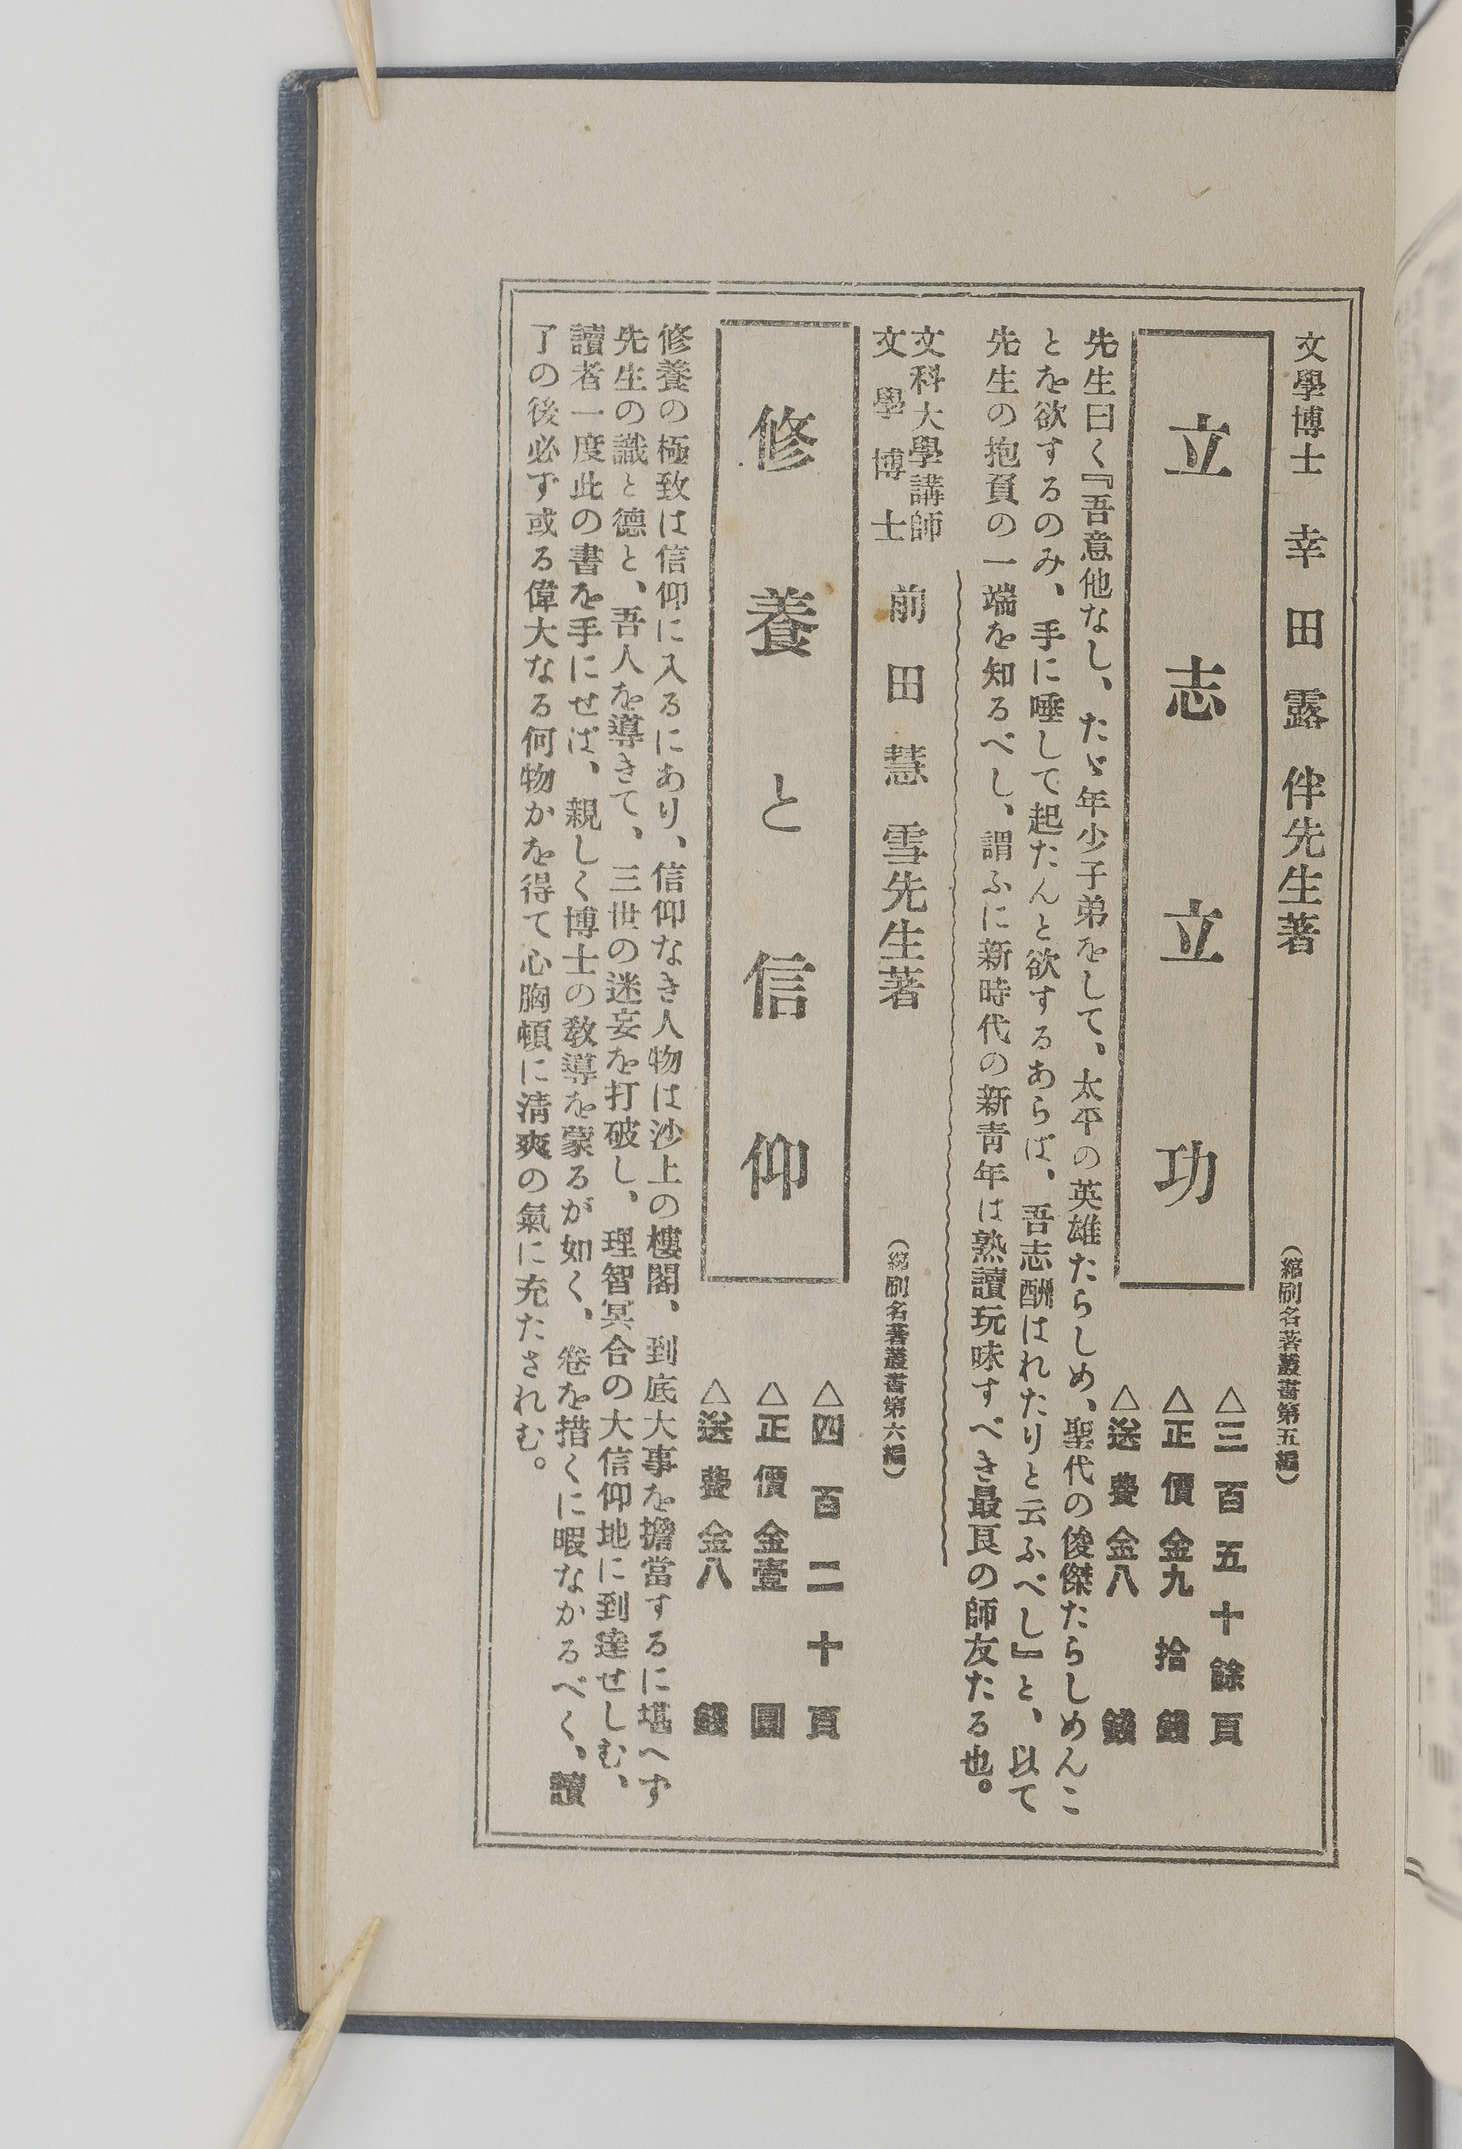 文學博士　幸田露伴先生著
（縮刷名著叢書第五編）
立志立功
△三百五十餘頁
△正價金九拾錢
△送費金八錢
先生曰く『吾意他なし、たゞ年少子弟をして、太平の英雄たらしめ、聖代の俊傑たらしめんこ
とを欲するのみ、手に唾して起たんと欲するあらば、吾志酬はれたりと云ふべし』と、以て
先生の抱負の一端を知るべし、謂ふに新時代の新青年は熟讀玩味すべき最良の師友たる也。
文科大學講師
文學博士
前田慧雲先生著
（縮刷名著叢書第六編）
修養と信仰
△四百二十頁
△正價金壹圓
△送費金八錢
修養の極致は信仰に入るにあり、信仰なき人物は沙上の樓閣、到底大事を擔當するに堪へず
先生の識と德と、吾人を導きて、三世の迷妄を打破し、理智冥合の大信仰地に到達せしむ、
讀者一度此の書を手にせば、親しく博士の敎導を蒙るが如く、卷を措くに暇なかるべく、讀
了の後必ず或る偉大なる何物かを得て心胸頓に淸爽の氣に充たされむ。